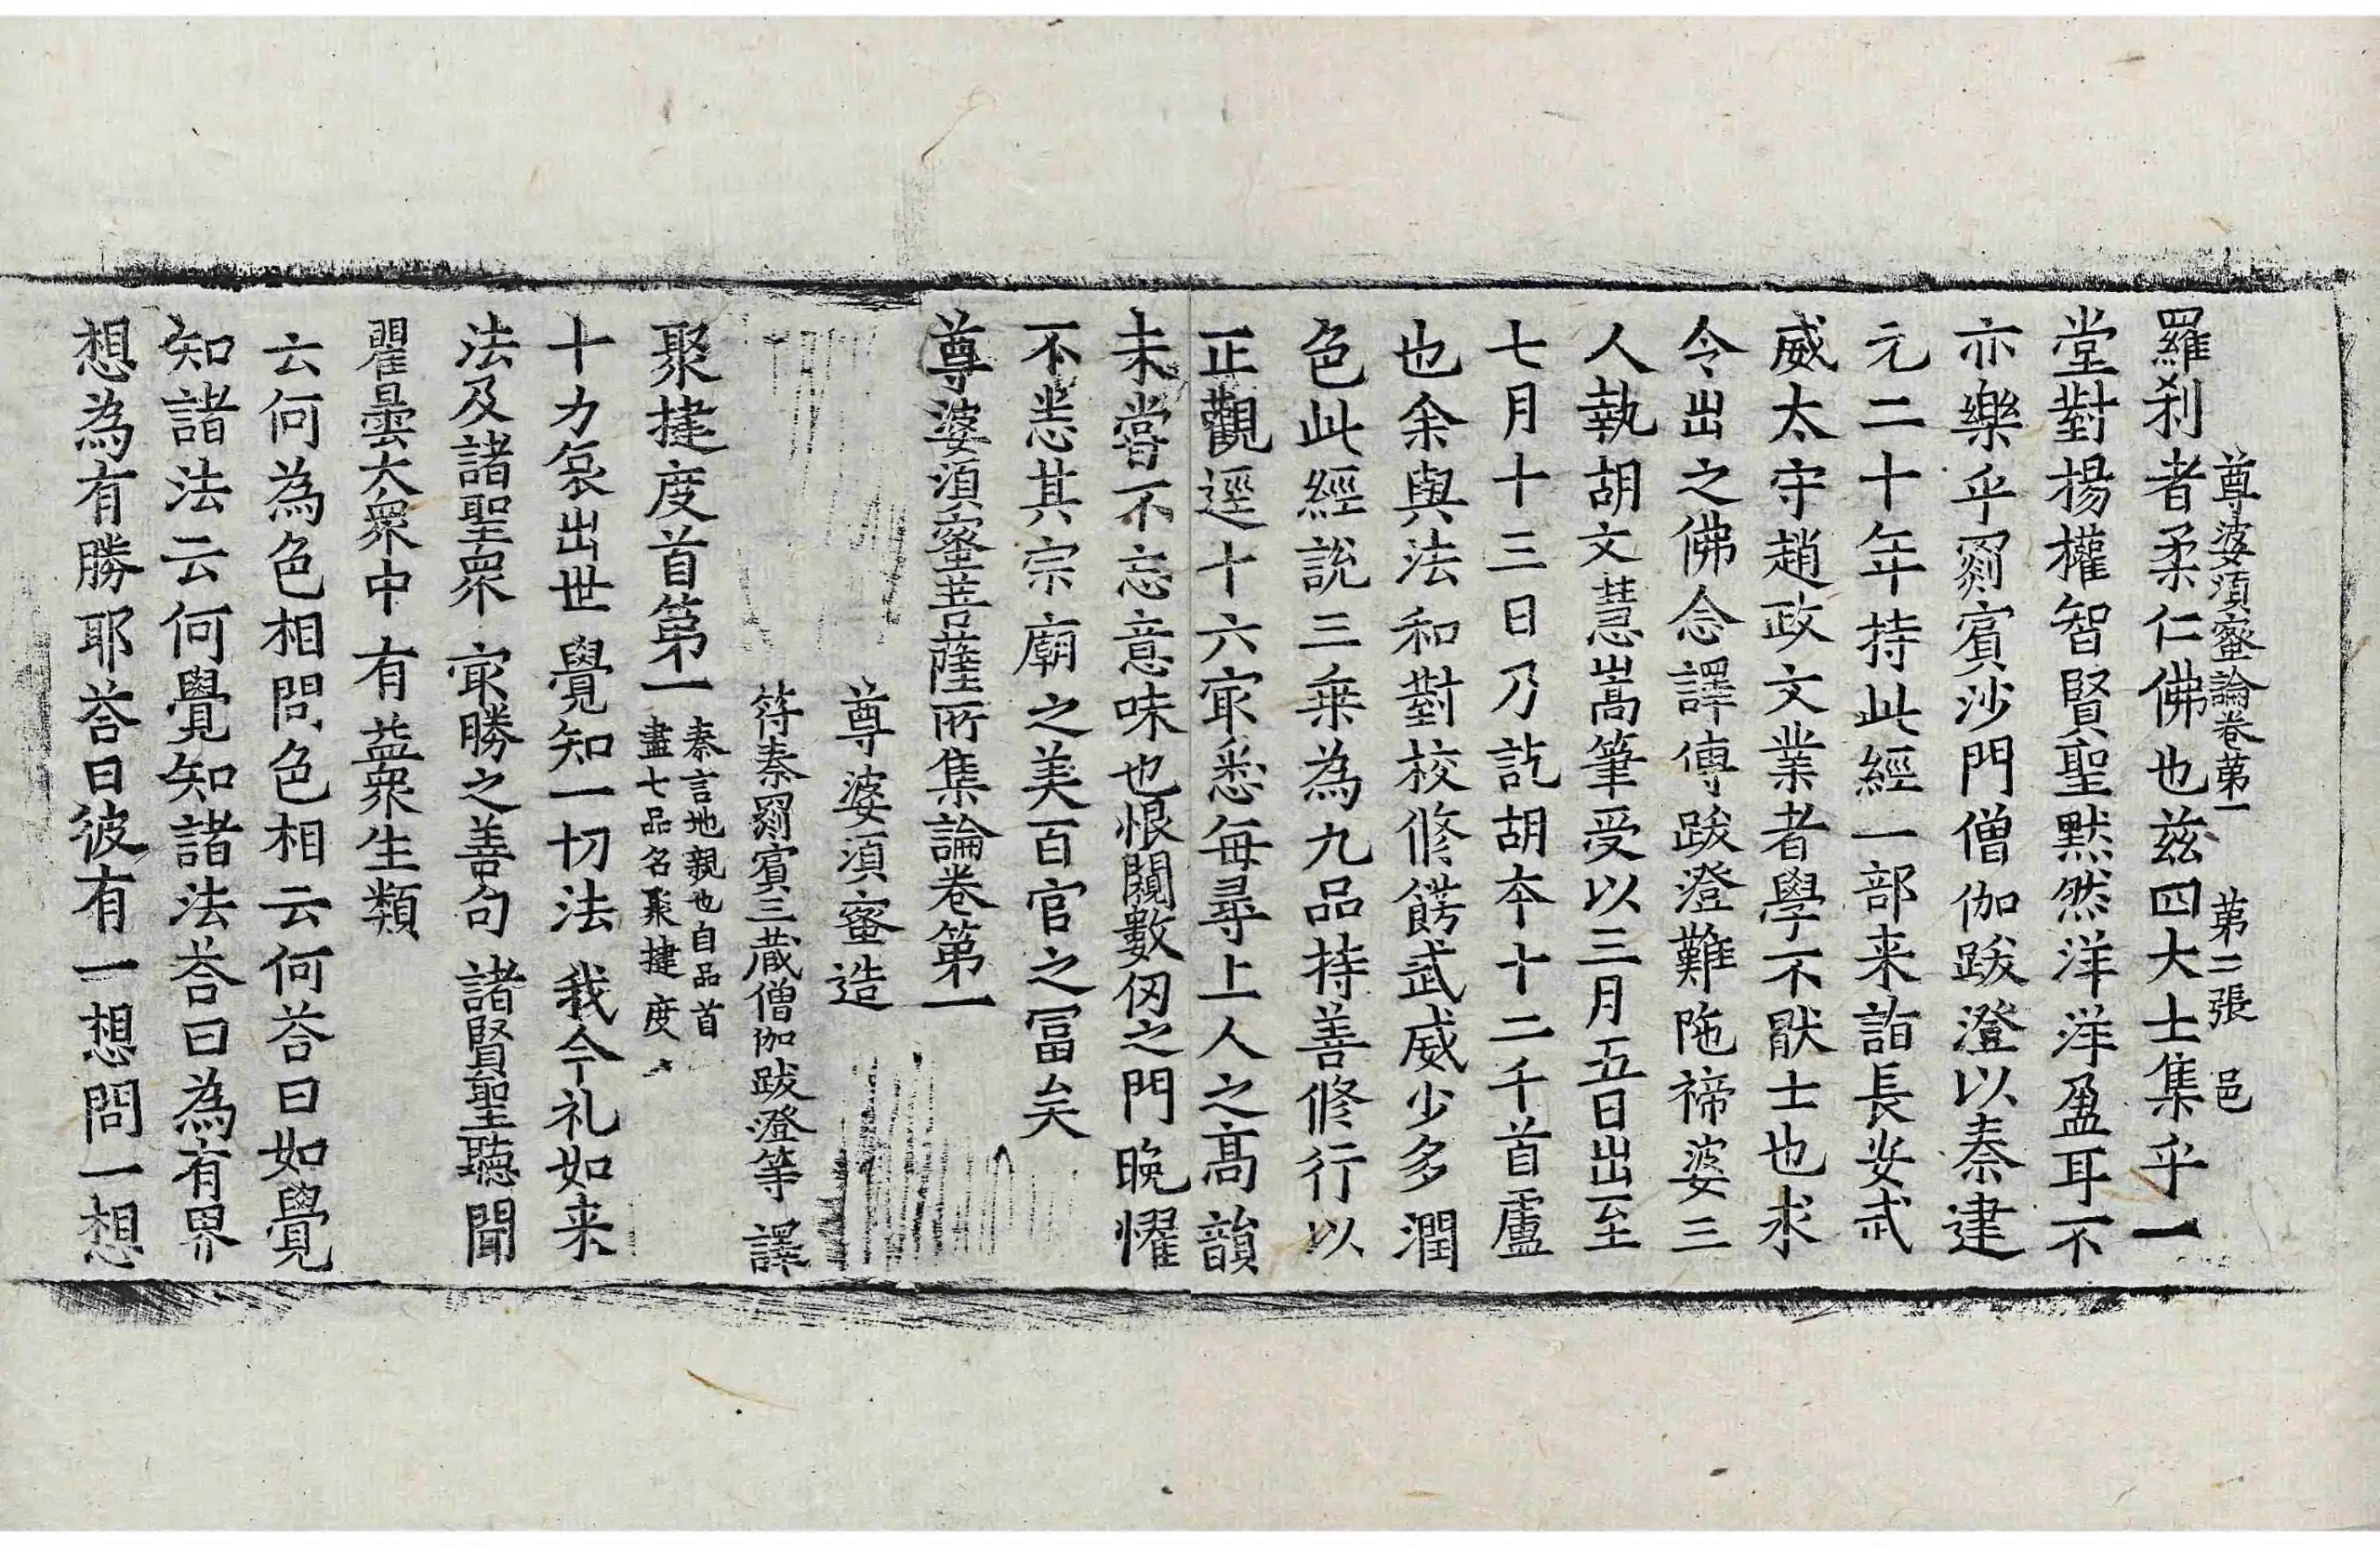 尊婆須蜜論卷苐一 苐二張 邑
羅刹者柔仁佛也兹四大士集乎一
堂對揚權智賢聖默然洋洋盈耳不
亦樂乎罽賓沙門僧伽跋澄以秦建
元二十年持此經一部来詣長安武
威太守趙政文業者學不猒士也求
令出之佛念譯傳跋澄難陁禘婆三
人執胡文慧嵩筆受以三月五日出至
七月十三日乃訖胡夲十二千首盧
也余與法和對校修餝武威少多潤
色此經說三乗為九品持善修行以
正觀逕十六㝡悉每尋上人之髙韻
未嘗不忘意味也恨闚數仭之門晚懼
不悉其宗廟之美百官之冨矣
尊婆須蜜菩薩所集論卷第一
尊婆須蜜造
符秦罽賓三蔵僧伽跋澄等譯
聚揵度首第一 秦言地親也自品首
盡七品名聚揵度
十力哀出世 覺知一切法 我今礼如来
法及諸聖衆 㝡勝之善句 諸賢聖聽聞
瞿曇大衆中 有益衆生類
云何為色相問色相云何荅曰如覺
知諸法云何覺知諸法荅曰為有界
想為有勝耶荅曰彼有一想問一想